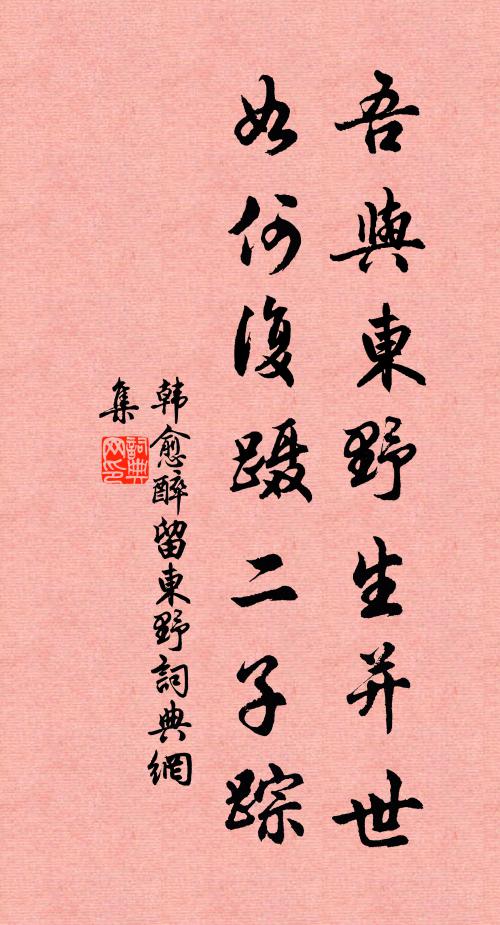 吾與東野生并世
如何復蹑二子踪
韩愈醉留東野詞典網
集
詞典网印